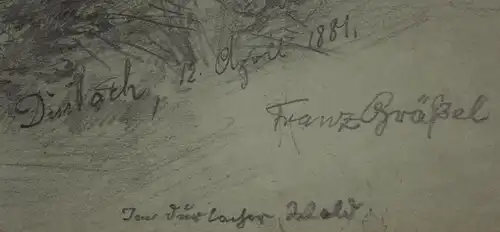 Durlach, 12. April 1881.
Franz Gräßel
Im Durlacher Wald.